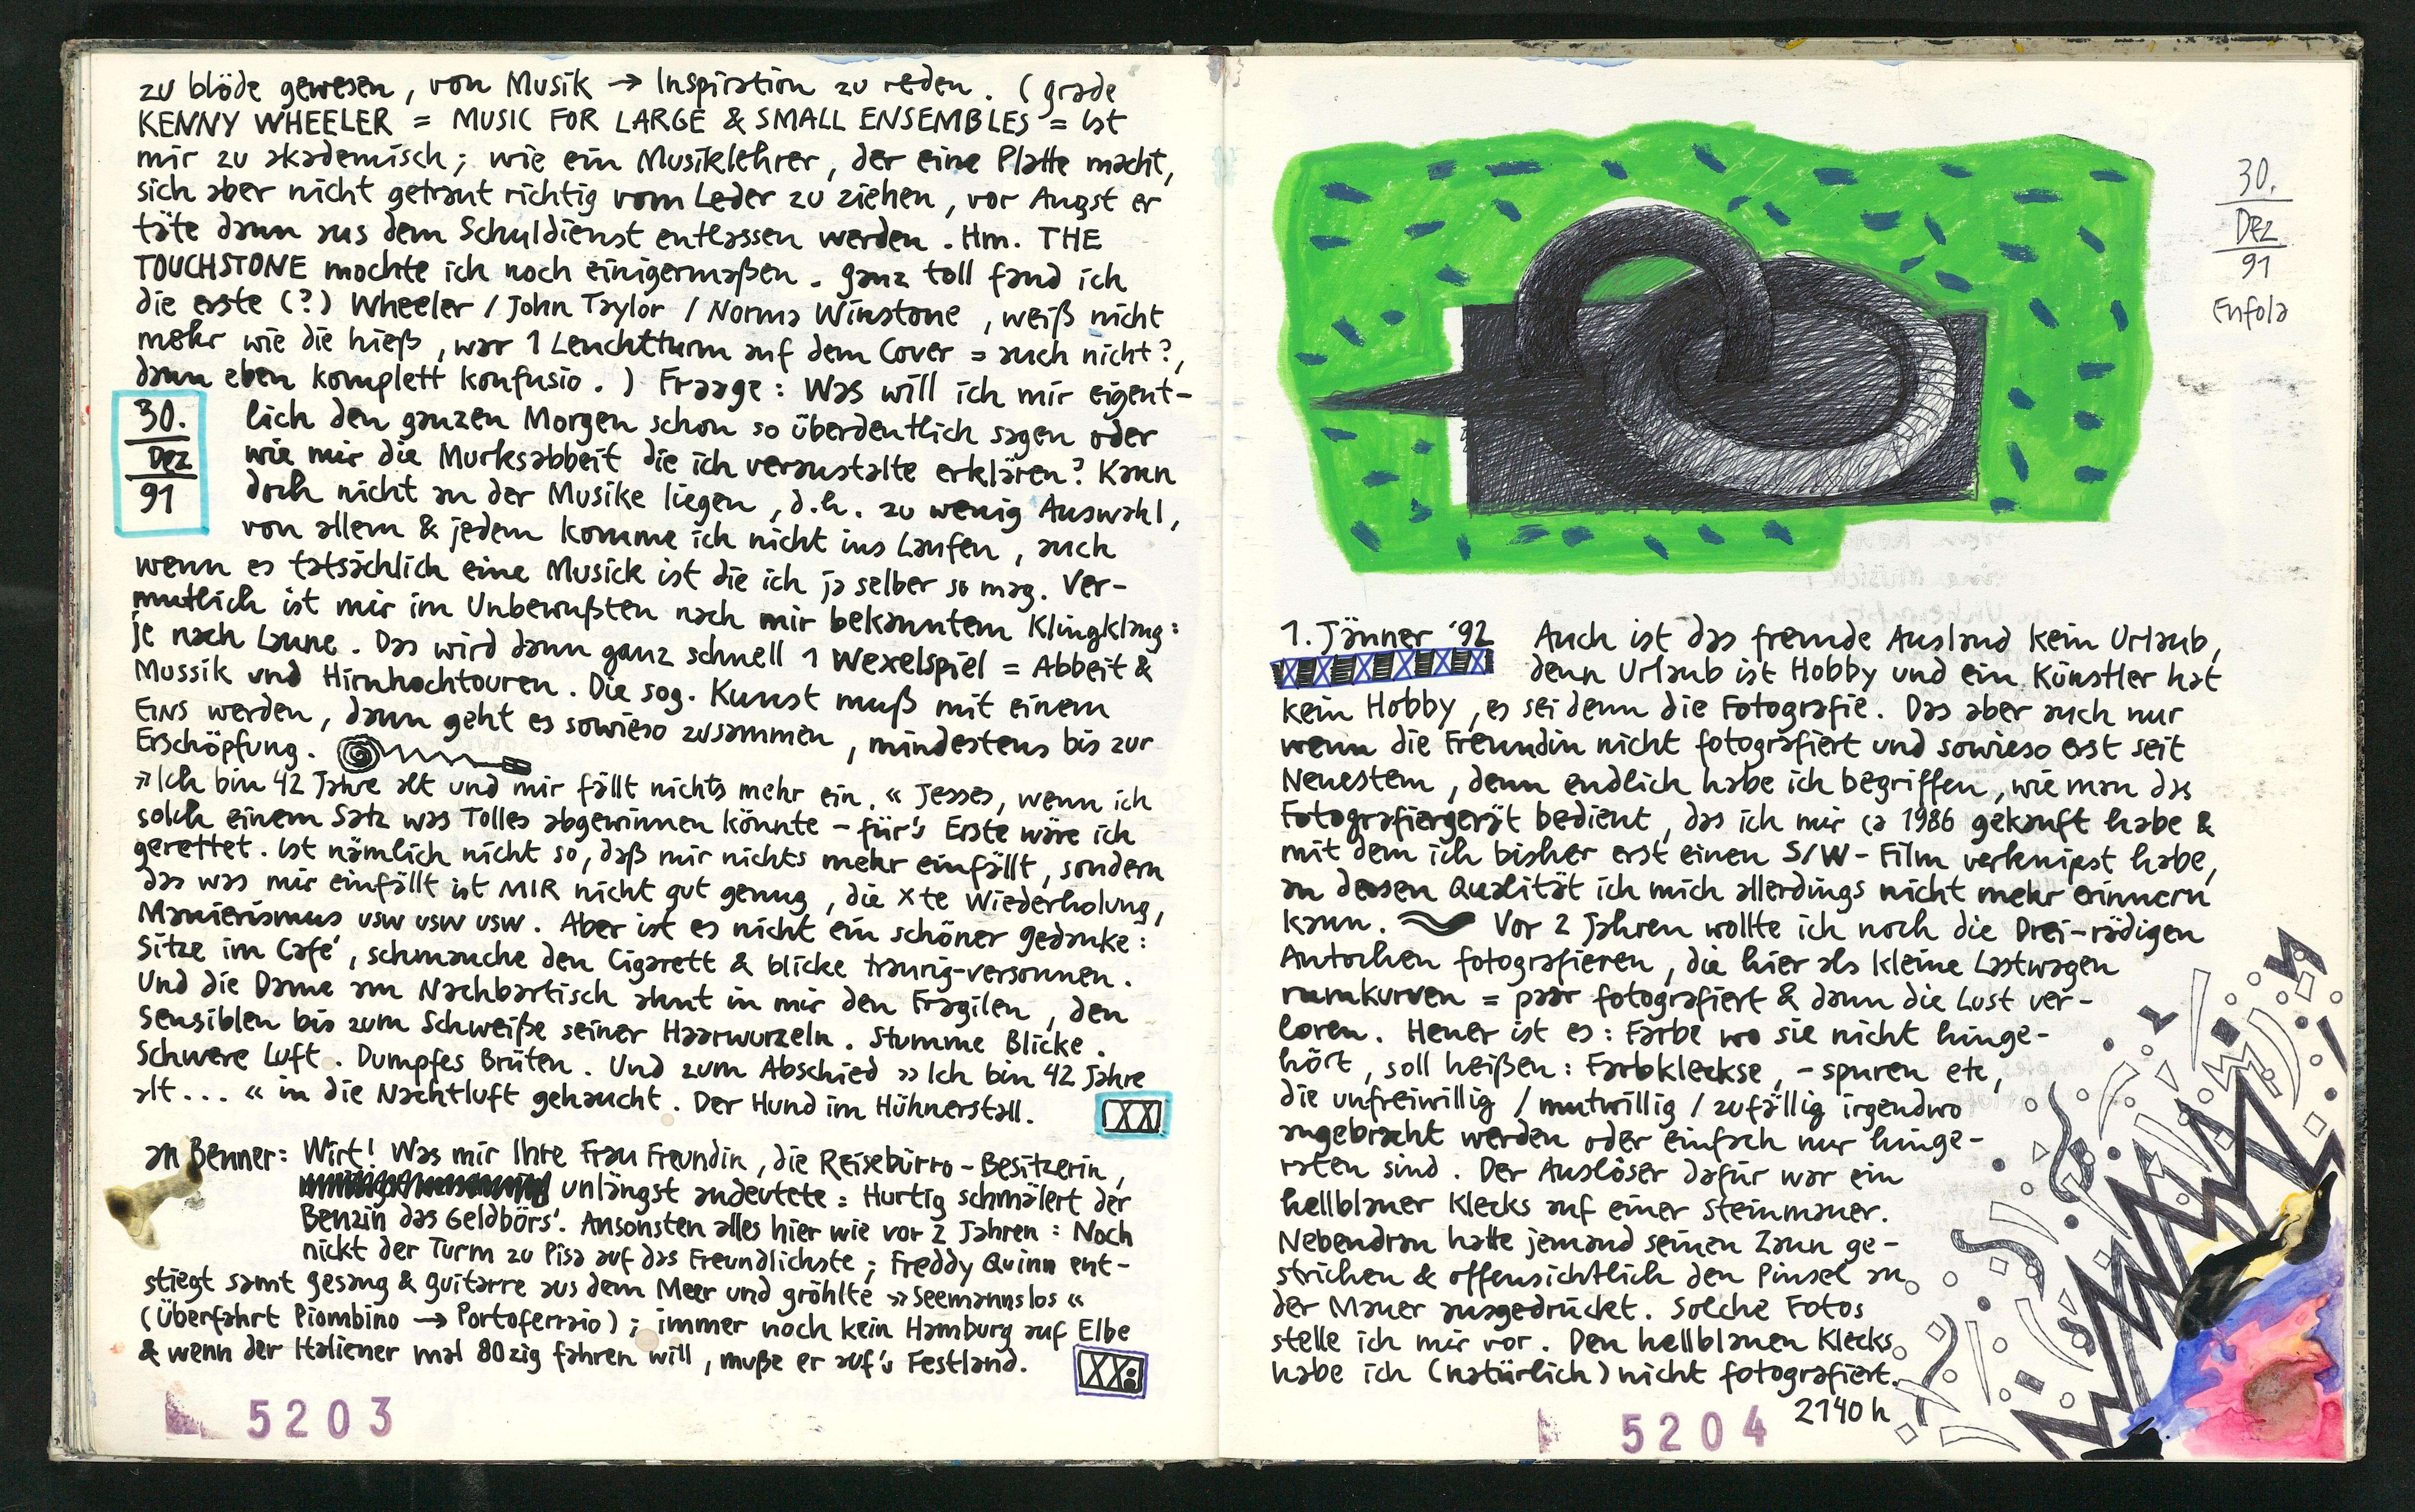 zu blöde gewesen, von Musik → Inspiration zu reden. (grade
KENNY WHEELER = MUSIC FOR LARGE & SMALL ENSEMBLES = ist
mir zu akademisch; wie ein Musiklehrer, der eine Platte macht,
sich aber nicht getraut richtig vom Leder zu ziehen, vor Angst er
täte dann aus dem Schuldienst entlassen werden. Hm. THE
TOUCHSTONE mochte ich noch einigermaßen. Ganz toll fand ich
die erste (?) Wheeler / John Taylor / Norma Winstone, weiß nicht
mehr wie die hieß, war 1 Leuchtturm auf dem Cover = auch nicht?,
dann eben komplett konfusio.) Fraage: Was will ich mir eigent-
30.
Dez
91
lich den ganzen Morgen schon so überdeutlich sagen oder
wie mir die Murksabbeit die ich veranstalte erklären? Kann
doch nicht an der Musike liegen, d.h. zu wenig Auswahl,
von allem & jedem komme ich nicht ins Laufen, auch
wenn es tatsächlich eine Musick ist die ich ja selber so mag. Ver-
mutlich ist mir im Unbewußten nach mir bekanntem Klingklang:
je nach Laune. Das wird dann ganz schnell 1 Wexelspiel = Abbeit &
Mussik und Hirnhochtouren. Die sog. Kunst muß mit einem
EINS werden, dann geht es sowieso zusammen, mindestens bis zur
Erschöpfung.
»Ich bin 42 Jahre alt und mir fällt nichts mehr ein.« Jesses, wenn ich
solch einem Satz was Tolles abgewinnen könnte – für's Erste wäre ich
gerettet. Ist nämlich nicht so, daß mir nichts mehr einfällt, sondern
das was mir einfällt ist MIR nicht gut genug, die Xte Wiederholung,
Manierismus usw usw usw. Aber ist es nicht ein schöner Gedanke:
Sitze im Café, schmauche den Cigarett & blicke traurig-versonnen.
Und die Dame am Nachbartisch ahnt in mir den Fragilen, den
Sensiblen bis zum Schweiße seiner Haarwurzeln. Stumme Blicke.
Schwere Luft. Dumpfes Brüten. Und zum Abschied »Ich bin 42 Jahre
alt... « in die Nachtluft gehaucht. Der Hund im Hühnerstall.
XX
an Benner: Wirt! Was mir Ihre Frau Freundin, die Reisebürro-Besitzerin,
unlängst andeutete: Hurtig schmälert der
Benzin das Geldbörs'. Ansonsten alles hier wie vor 2 Jahren: Noch
nickt der Turm zu Pisa auf das Freundlichste; Freddy Quinn ent-
stiegt samt Gesang & Guitarre aus dem Meer und gröhlte »Seemannslos«
(Überfahrt Piombino → Portoferraio); immer noch kein Hamburg auf Elbe
& wenn der Italiener mal 80zig fahren will, muße er auf's Festland.
XX:
5203
30.
Dez
91
Enfola
1. Jänner '92
Auch ist das fremde Ausland kein Urlaub,
denn Urlaub ist Hobby und ein Künstler hat
kein Hobby, es sei denn die Fotografie. Das aber auch nur
wenn die Freundin nicht fotografiert und sowieso erst seit
Neuestem, denn endlich habe ich begriffen, wie man das
Fotografiergerät bedient, das ich mir ca 1986 gekauft habe &
mit dem ich bisher erst einen S/W-Film verknipst habe,
an dessen Qualität ich mich allerdings nicht mehr erinnern
kann. Vor 2 Jahren wollte ich noch die Drei-rädigen
Autochen fotografieren, die hier als kleine Lastwagen
rumkurven = paar fotografiert & dann die Lust ver-
loren. Heuer ist es: Farbe wo sie nicht hinge-
hört, soll heißen: Farbkleckse, -spuren etc,
die unfreiwillig / mutwillig / zufällig irgendwo
angebracht werden oder einfach nur hinge-
raten sind. Der Auslöser dafür war ein
hellblauer Klecks auf einer Steinmauer.
Nebendran hatte jemand seinen Zaun ge-
strichen & offensichtlich den Pinsel an
der Mauer ausgedrückt. Solche Fotos
stelle ich mir vor. Den hellblauen Klecks
habe ich (natürlich) nicht fotografiert.
2140h
5204